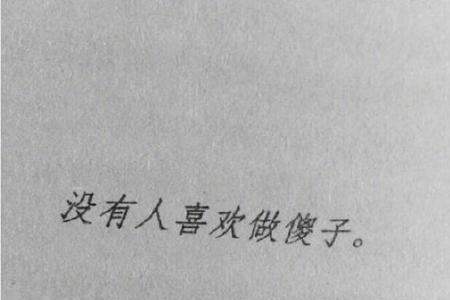 没有人喜欢做傻子。